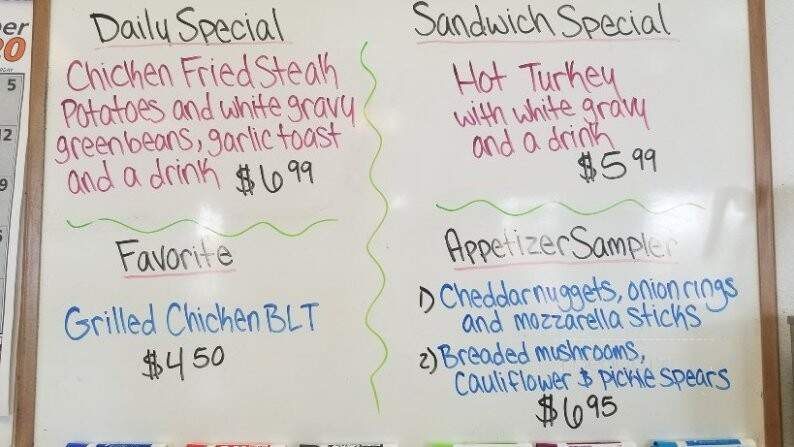 er
20
5
12
9
Daily Special
Chicken Fried Steak
Potatoes and white gravy
greenbeans, garlic toast
and a drink $6 99
Sandwich Special
Hot Turkey
with white gravy
and a drink
$5 99
Favorite
Grilled Chicken BLT
$4 50
Appetizer Sampler
1) Cheddar nuggets, onion rings
and mozzarella sticks
2) Breaded mushrooms,
Cauliflower & pickle spears
$6 95